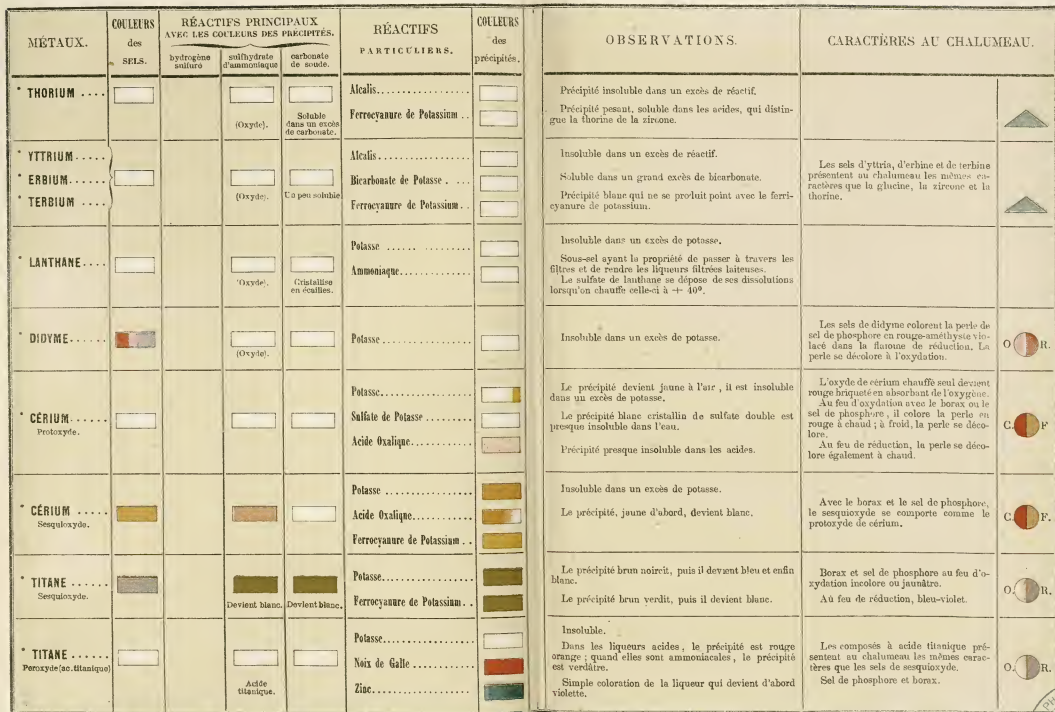 MÉTAUX.
COULEURS
des
SELS.
RÉACTIFS PRINCIPAUX
AVEC LES COULEURS DES PRÉCIPITÉS.
hydrogène
sulfuré
sulfhydrate
d'ammoniaque
carbonate
de soude.
RÉACTIFS
PARTICULIERS.
COULEURS
des
précipités.
OBSERVATIONS.
CARACTÈRES AU CHALUMEAU.
* THORIUM ....
(Oxyde).
Soluble
dans un excès
de carbonate.
Alcalis................
Ferrocyanure de Potassium ..
Précipité insoluble dans un excès de réactif.
Précipité pesant, soluble dans les acides, qui distin-
gue la thorine de la zircone.
* YTTRIUM .....
* ERBIUM .....
* TERBIUM ....
(Oxyde).
Un peu soluble
Alcalis................
Bicarbonate de Potasse . ...
Ferrocyanure de Potassium ..
Insoluble dans un excès de réactif.
Soluble dans un grand excès de bicarbonate.
Précipité blanc qui ne se produit point avec le ferri-
cyanure de potassium.
Les sels d'yttria, d'erbine et de terbine
présentent au chalumeau les mêmes ca-
ractères que la glucine, la zircone et la
thorine.
* LANTHANE ....
(Oxyde).
Cristallise
en écailles.
Potasse ................
Ammoniaque................
Insoluble dans un excès de potasse.
Sous-sel ayant la propriété de passer à travers les
filtres et de rendre les liqueurs filtrées laiteuses.
Le sulfate de lanthane se dépose de ses dissolutions
lorsqu'on chauffe celle-ci à + 40°.
* DIDYME.....
(Oxyde).
Potasse ................
Insoluble dans un excès de potasse.
Les sels de didyme colorent la perle de
sel de phosphore en rouge-améthyste vio-
lacé dans la flamme de réduction. La
perle se décolore à l'oxydation.
O R.
* CÉRIUM ......
Protoxyde.
Potasse................
Sulfate de Potasse ..........
Acide Oxalique..............
Le précipité devient jaune à l'air , il est insoluble
dans un excès de potasse.
Le précipité blanc cristallin de sulfate double est
presque insoluble dans l'eau.
Précipité presque insoluble dans les acides.
L'oxyde de cérium chauffé seul devient
rouge briqueté en absorbant de l'oxygène.
Au feu d'oxydation avec le borax ou le
sel de phosphore , il colore la perle en
rouge à chaud ; à froid, la perle se déco-
lore.
Au feu de réduction, la perle se déco-
lore également à chaud.
C. F
* CÉRIUM ......
Sesquioxyde.
Potasse ................
Acide Oxalique............
Ferrocyanure de Potassium ..
Insoluble dans un excès de potasse.
Le précipité, jaune d'abord, devient blanc.
Avec le borax et le sel de phosphore,
le sesquioxyde se comporte comme le
protoxyde de cérium.
C. F.
* TITANE ......
Sesquioxyde.
Devient blanc.
Devient blanc.
Potasse................
Ferrocyanure de Potassium ..
Le précipité brun noircit, puis il devient bleu et enfin
blanc.
Le précipité brun verdit, puis il devient blanc.
Borax et sel de phosphore au feu d'o-
xydation incolore ou jaunâtre.
Au feu de réduction, bleu-violet.
O. R.
* TITANE ......
Peroxyde (ac. titanique)
Acide
titanique.
Potasse ................
Noix de Galle ..............
Zinc................
Insoluble.
Dans les liqueurs acides , le précipité est rouge
orange ; quand elles sont ammoniacales , le précipité
est verdâtre.
Simple coloration de la liqueur qui devient d'abord
violette.
Les composés à acide titanique pré-
sentent au chalumeau les mêmes carac-
tères que les sels de sesquioxyde.
Sel de phosphore et borax.
O. R.